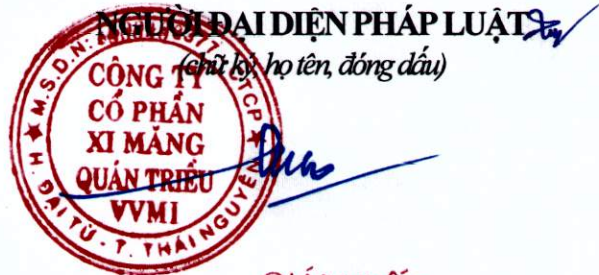 NGƯỜI ĐẠI DIỆN PHÁP LUẬT
(chữ ký, họ tên, đóng dấu)
CÔNG TY
CỔ PHẦN
XI MĂNG
QUÁN TRIỀU
VVMI
H. ĐẠI TỪ - T. THÁI NGUYÊN
M.S.D.N: